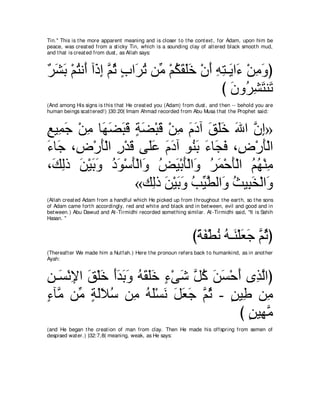 Tin." This is the more apparent meaning and is closer to the context, for Adam, upon him be
peace, was created from a sticky Tin, which is a sounding clay of altered black smooth mud,
and that is created from dust, as Allah says:
وَمِنْ ءَايَـتِهِ أَنْ خَلَقَكُمْ مِّن تُرَابٍ ثُمَّ إِذَآ أَنتُمْ بَشَرٌ
تَنتَشِرُونَ )
(And among His signs is this that He created you (Adam) from dust, and then -- behold you are
human beings scattered!) (30:20) Imam Ahmad recorded from Abu Musa that the Prophet said:
«إِنَّ اللهَ خَلَقَ آدَمَ مِنْ قَبْضَةٍ قَبَضَهَا مِنْ جَمِيعِ
الْأَرْضِ، فَجَاءَ بَنُو آدَمَ عَلَى قَدْرِ الْأَرْضِ، جَاءَ
مِنْهُمُ الْأَحْمَرُ وَالْأَبْيَضُ وَالْأَسْوَدُ وَبَيْنَ ذلِكَ،
وَالْخَبِيثُ وَالطَّيِّبُ وَبَيْنَ ذلِكَ»
(Allah created Adam from a handful which He picked up from throughout the earth, so the sons
of Adam came forth accordingly, red and white and black and in between, evil and good and in
between.) Abu Dawud and At-Tirmidhi recorded something similar. At-Tirmidhi said, "It is Sahih
Hasan. "
(ثُمَّ جَعَلْنَـهُ نُطْفَةً)
(Thereafter We made him a Nutfah.) Here the pronoun refers back to humankind, as in another
Ayah:
(الَّذِى أَحْسَنَ كُلَّ شَىْءٍ خَلَقَهُ وَبَدَأَ خَلْقَ الإِنْسَـنِ
مِن طِينٍ - ثُمَّ جَعَلَ نَسْلَهُ مِن سُلاَلَةٍ مِّن مَّآءٍ
مَّهِينٍ )
(and He began the creation of man from clay. Then He made his offspring from semen of
despised water.) (32:7,8) meaning, weak, as He says: